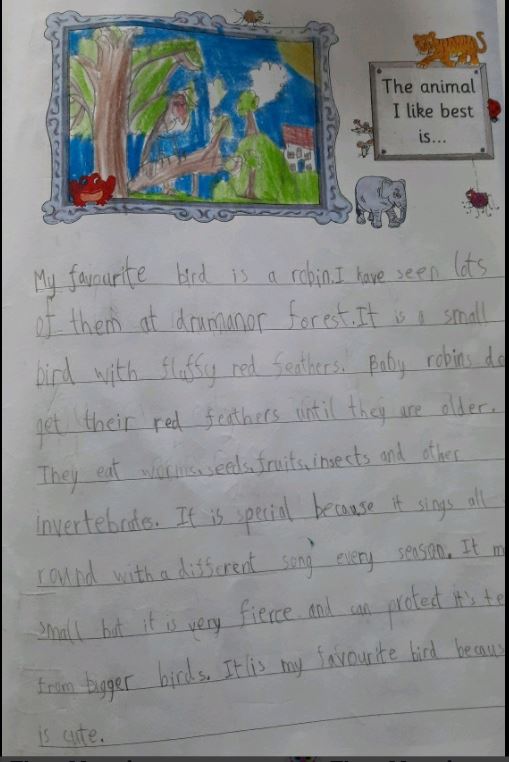 The animal
I like best
is...
My favourite bird is a robin. I have seen lots
of them at drumanor forest. It is a small
bird with fluffy red feathers. Baby robins do
get their red feathers until they are older.
They eat worms, seeds, fruits, insects and other
invertebrates. It is special because it sings all
round with a different song every season. It m
small but it is very fierce and can protect it's te
from bigger birds. It is my favourite bird becaus
is cute.